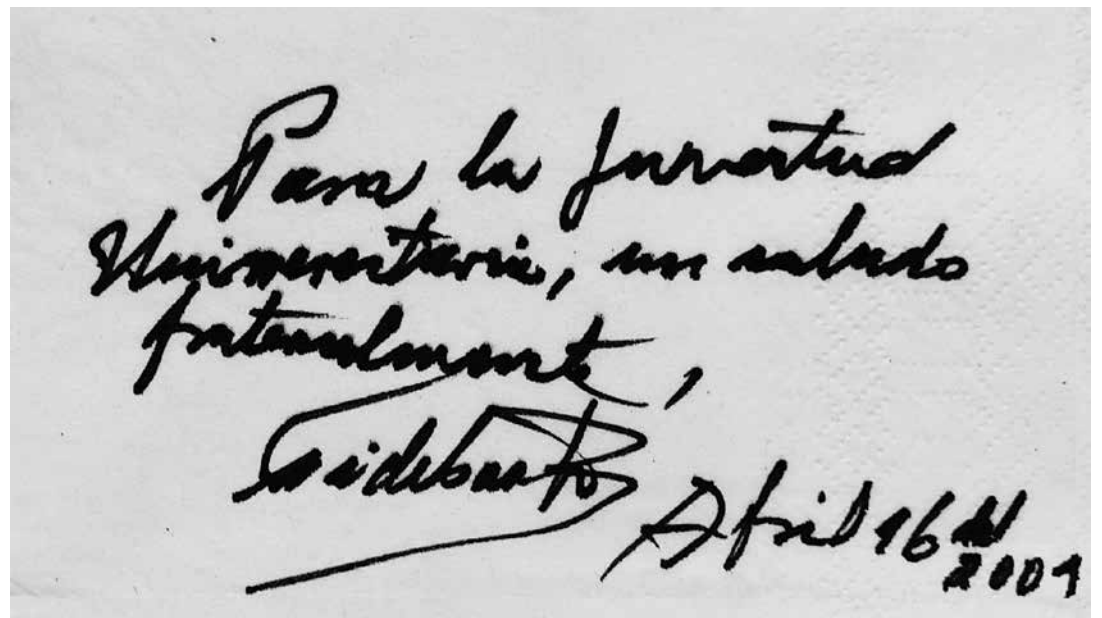 Para la Juventud
Universitaria, un saludo
fraternalmente,
Abril 16 del
2001